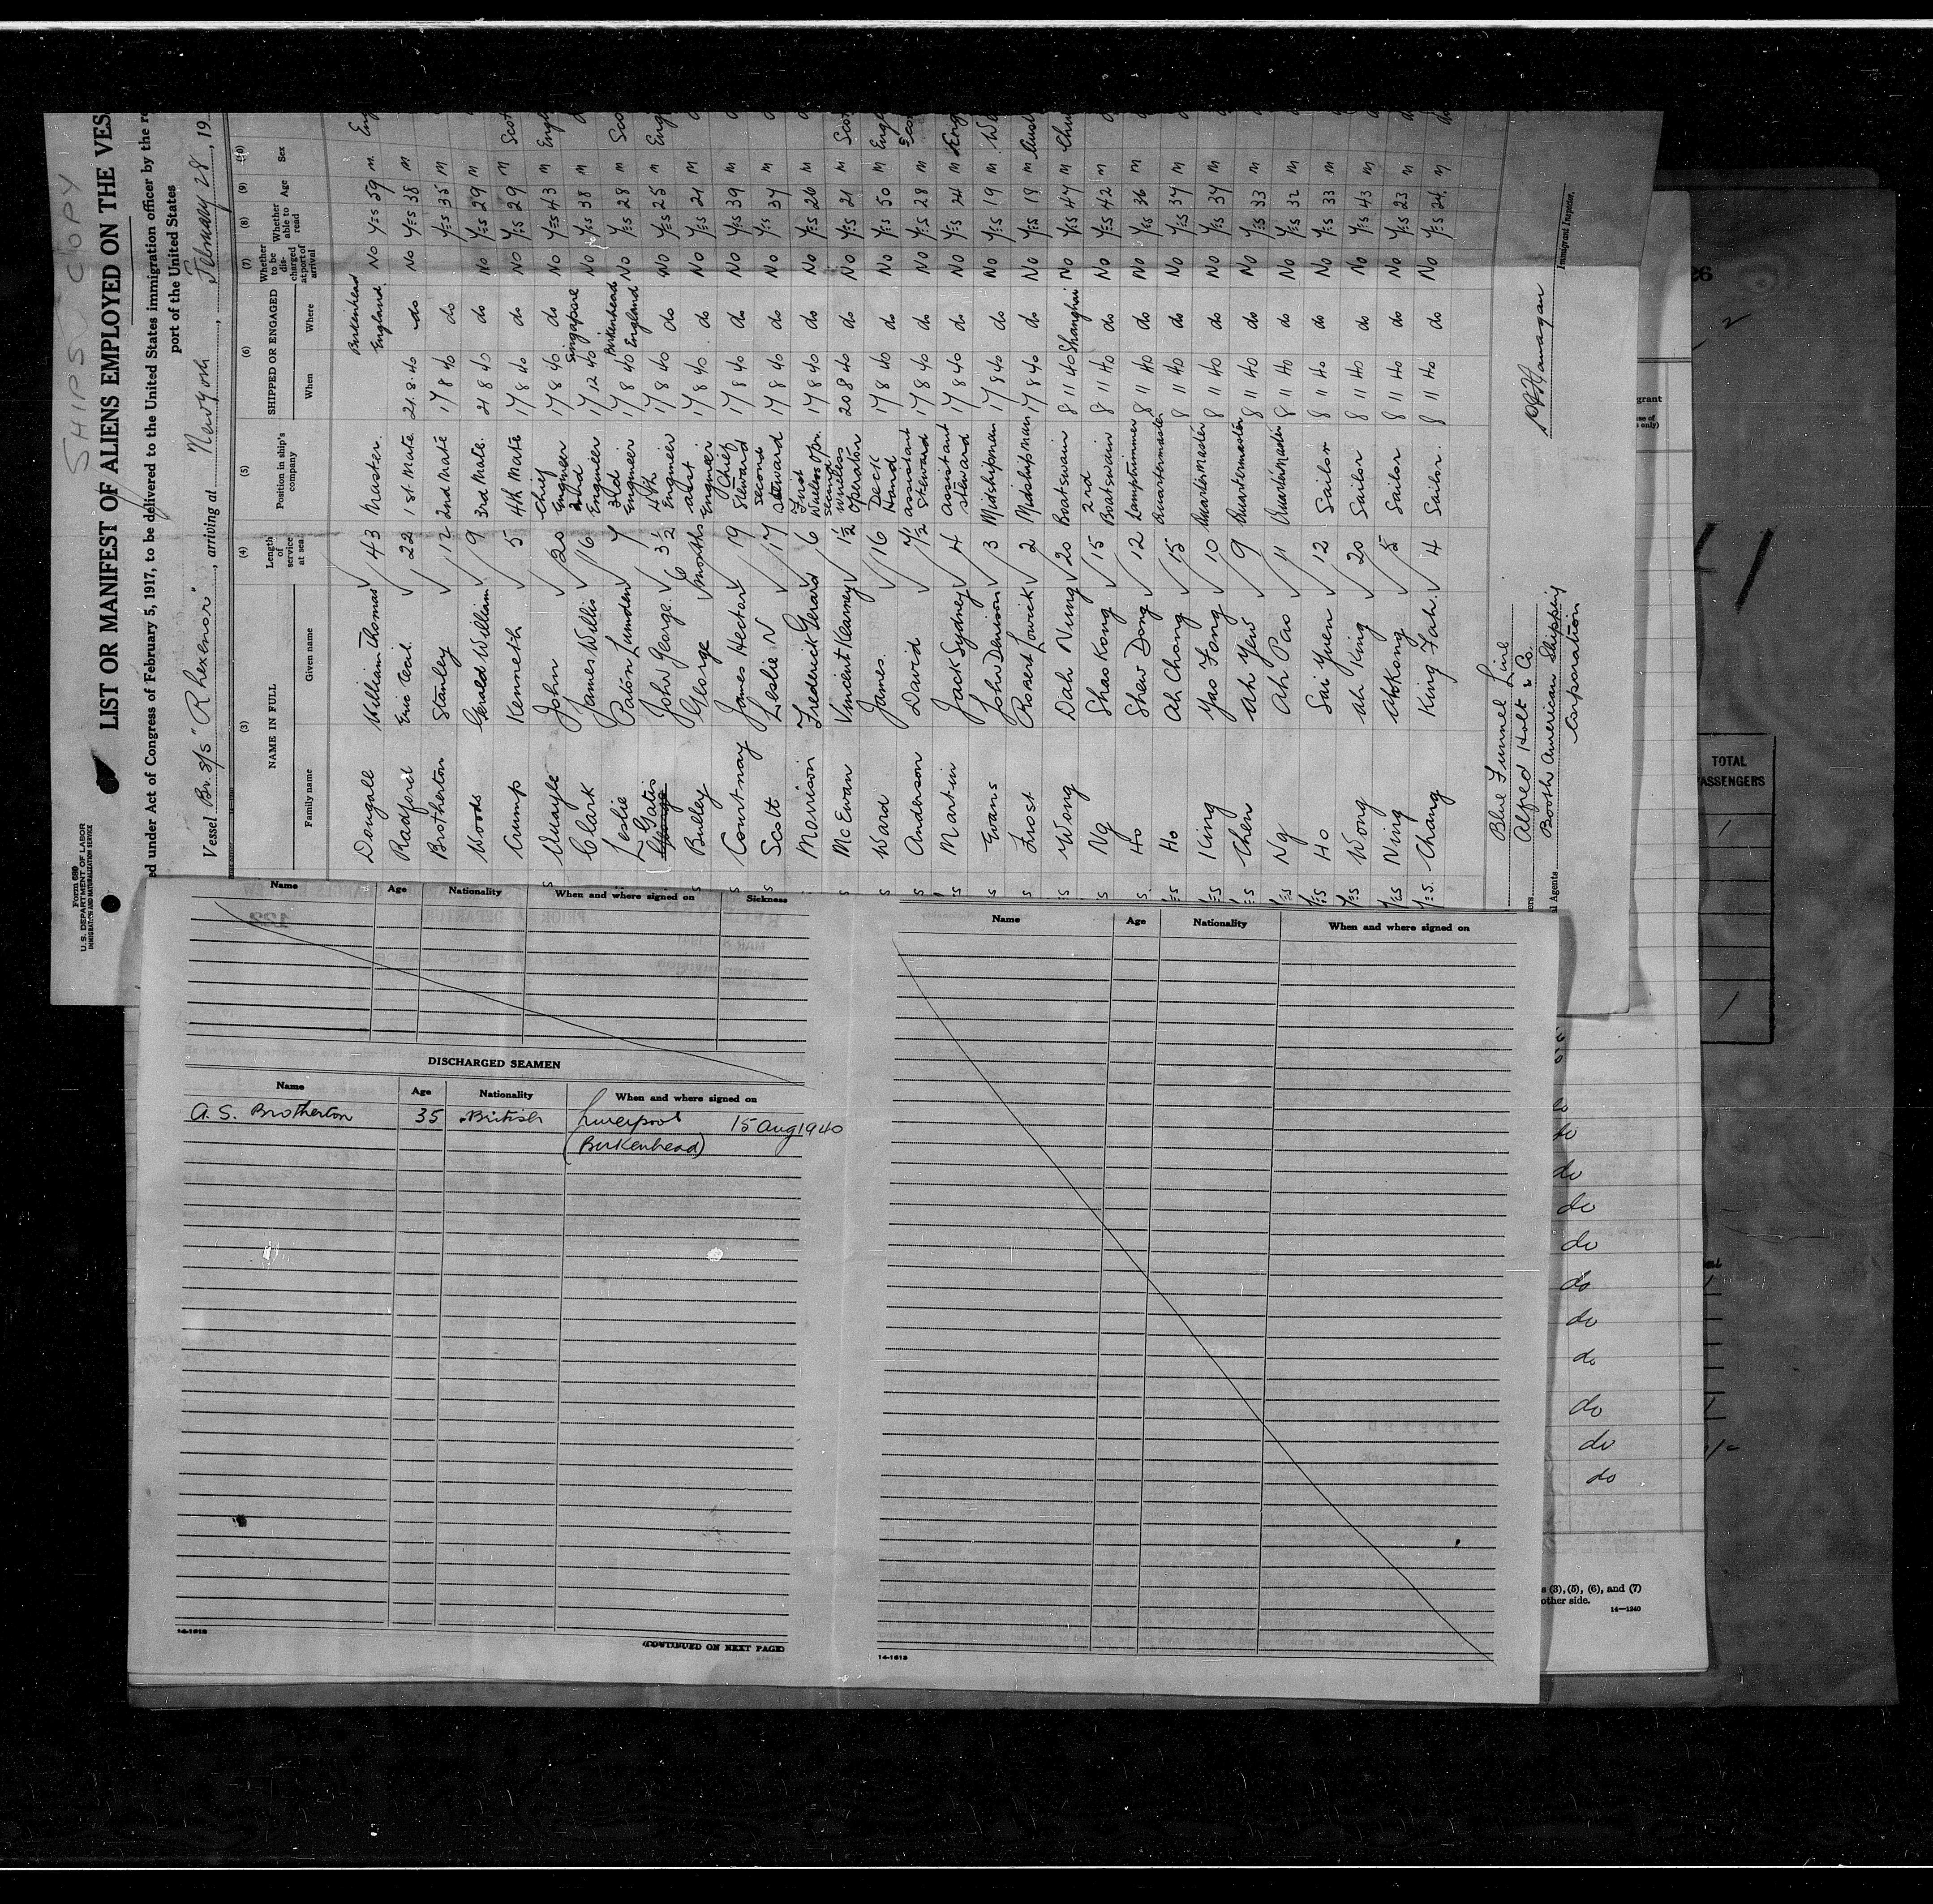 SHIPS COPY
Form 686
U.S. DEPARTMENT OF LABOR
IMMIGRATION AND NATURALIZATION SERVICE
LIST OR MANIFEST OF ALIENS EMPLOYED ON THE VES
ed under Act of Congress of February 5, 1917, to be delivered to the United States immigration officer by the re
port of the United States
Vessel Br. s/s "Rhexenor", arriving at New York, February 28, 19
(3) (4) (5) (6) (7) (8) (9) (10)
NAME IN FULL Length of service at sea Position in ship's company SHIPPED OR ENGAGED Whether to be discharged at port of arrival Whether able to read Age Sex
Family name Given name When Where
Dougall William Thomas 43 Master. Birkenhead England. No Yes 59 m Eng
Radford Eric Cecil 22 1st Mate 21.8.40 do No Yes 38 m
Brotherton Stanley 12 2nd Mate 17 8 40 do Yes 35 m
Woods Gerald William 9 3rd Mate. 21 8 40 do No Yes 29 m
Crump Kenneth 5 4th Mate 17 8 40 do No Yes 29 M Scot
Quayle John 20 Chief Engineer 17 8 40 do No Yes 43 m Engl
Clark James Willis 16 2nd Engineer 17 12 40 Singapore No Yes 38 m
Leslie Paton Lumden 7 3rd Engineer 17 8 40 Birkenhead England No Yes 28 m Sco
Gates John George. 3 1/2 4th Engineer 17 8 40 do No Yes 25 m Eng
Bulley George 6 months asst Engineer 17 8 40 do No Yes 21 m
Courtnay James Hector 19 Chief Steward 17 8 40 do No Yes 39 m
Scott Leslie N 17 second steward 17 8 40 do No Yes 37 m
Morrison Frederick Gerard 6 First Wireless Opr. 17 8 40 do No Yes 26 M
McEwan Vincent Kearney 1 1/2 second wireless operator 20 8 40 do No Yes 21 M Scot
Ward James. 16 Deck Hand 17 8 40 do No Yes 50 M Engl
Anderson David 7 1/2 assistant steward 17 8 40 do No Yes 28 m Scot
Martin Jack Sydney 4 assistant steward 17 8 40 do No Yes 24 m Eng
Evans John Denison 3 Midshipman 17 8 40 do No Yes 19 m
Frost Robert Lowick 2 Midshipman 17 8 40 do No Yes 18 m
Wong Dah Nung 20 Boatswain 8 11 40 Shanghai No Yes 47 m
Ng Shao Kong 15 2nd Boatswain 8 11 40 do No Yes 42 m
Ho Shew Dong 12 Lamptrimmer 8 11 40 do No Yes 36 m
Ho Ah Chong 15 Quartermaster 8 11 40 do No Yes 37 m
King Yao Fong 10 Quartermaster 8 11 40 do No Yes 37 m
Chen Ah Yew 9 Quartermaster 8 11 40 do No Yes 33 m
Ng Ah Pao 11 Quartermaster 8 11 40 do No Yes 32 m
Ho Sai Yuen 12 Sailor 8 11 40 do No Yes 33 m
Wong Ah King 20 Sailor 8 11 40 do No Yes 43 m
Ning Ah Kong 5 Sailor 8 11 40 do No Yes 23 m
Chang King Fah. 4 Sailor. 8 11 40 do No Yes 24. m
Blue Funnel Line
Alfred Holt & Co.
Booth American Shipping Corporation
Immigrant Inspector.
Name Age Nationality When and where signed on Sickness
DISCHARGED SEAMEN
Name Age Nationality When and where signed on
A. S. Brotherton 35 British Liverpool 15 Aug 1940
(Birkenhead)
14-1613
(CONTINUED ON NEXT PAGE)
Name Age Nationality When and where signed on
14-1613
TOTAL
PASSENGERS
do
do
do
do
do
do
do
do
do
do
do
s (3), (5), (6), and (7)
other side.
14-1240